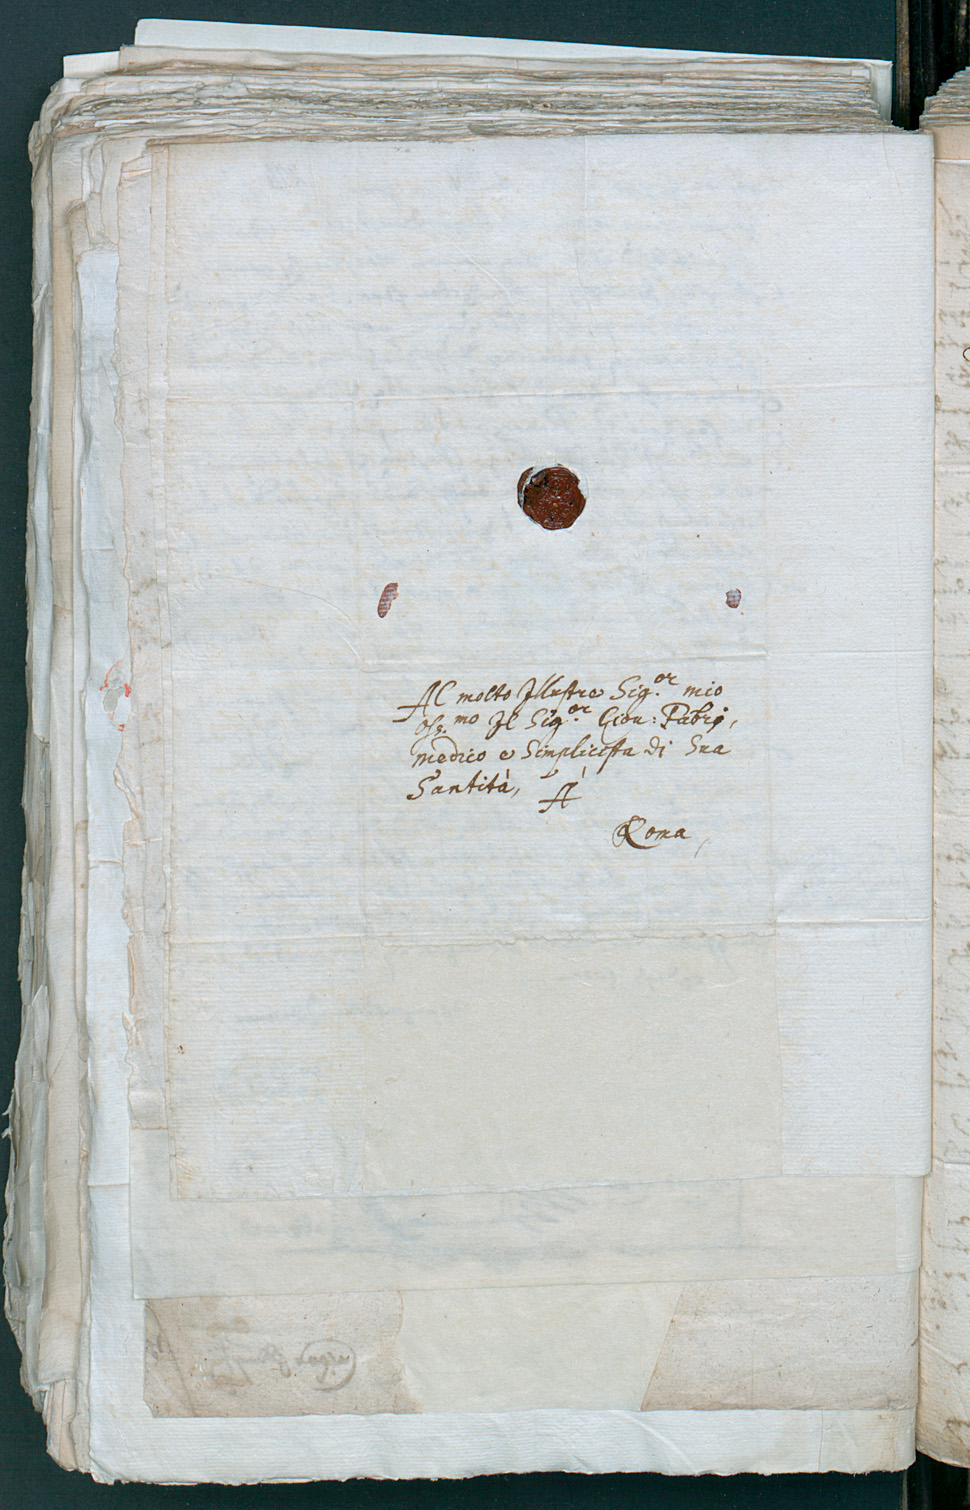 Al molto Illustre Sig.or mio
Oss.mo Il Sig.or Giou: Fabrj,
medico e Simplicista di Sua
Santità, À
Roma,